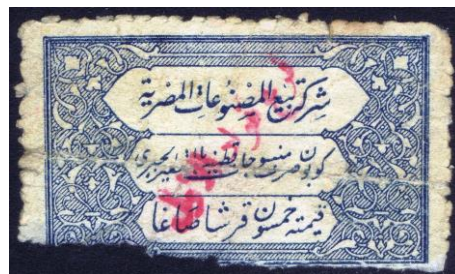 شركة بيع المصنوعات المصرية
كوبون صرف منسوجات قطنية
قيمته خمسون قرشا صاغا